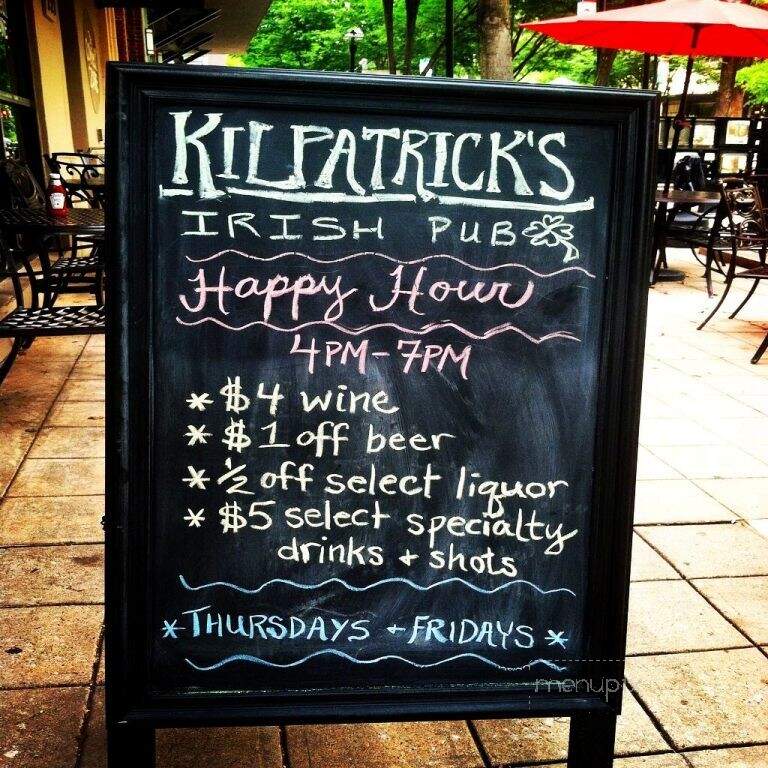 KILPATRICK'S
IRISH PUB
Happy Hour
4PM-7PM
* $4 wine
* $1 off beer
* ½ off select liquor
* $5 select specialty
drinks + shots
* THURSDAYS + FRIDAYS *